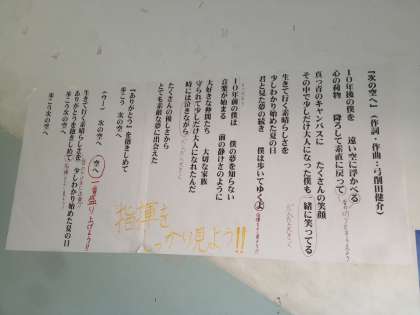 『次の空へ』(作詞・作曲：弓削田健介)
10年後の僕を 遠い空に浮かべる
心の荷物 降ろして素直に戻って
真っ青のキャンバスに たくさんの笑顔
その中で少しだけ大人になった僕も 一緒に笑ってる
生きて行く素晴らしさを
少しわかり始めた夏の日
君と見た夢の続き 僕は歩いてゆくよ
10年前の僕は 僕の夢を知らない
音楽が始まる 前の静けさのように
大好きな仲間たち 大切な家族
守られて少しだけ大人になれたんだ
時には泣きながら
たくさんの優しさから
とても素敵な夢に出会えた
『ありがとう』を抱きしめて
歩こう 次の空へ
(ウー) 空へ
一番盛り上げよう!!
生きて行く素晴らしさを 少しわかり始めた夏の日
ありがとうを抱きしめて
歩こう次の空へ
歩こう 次の空へ
指揮を
しっかり見よう!!